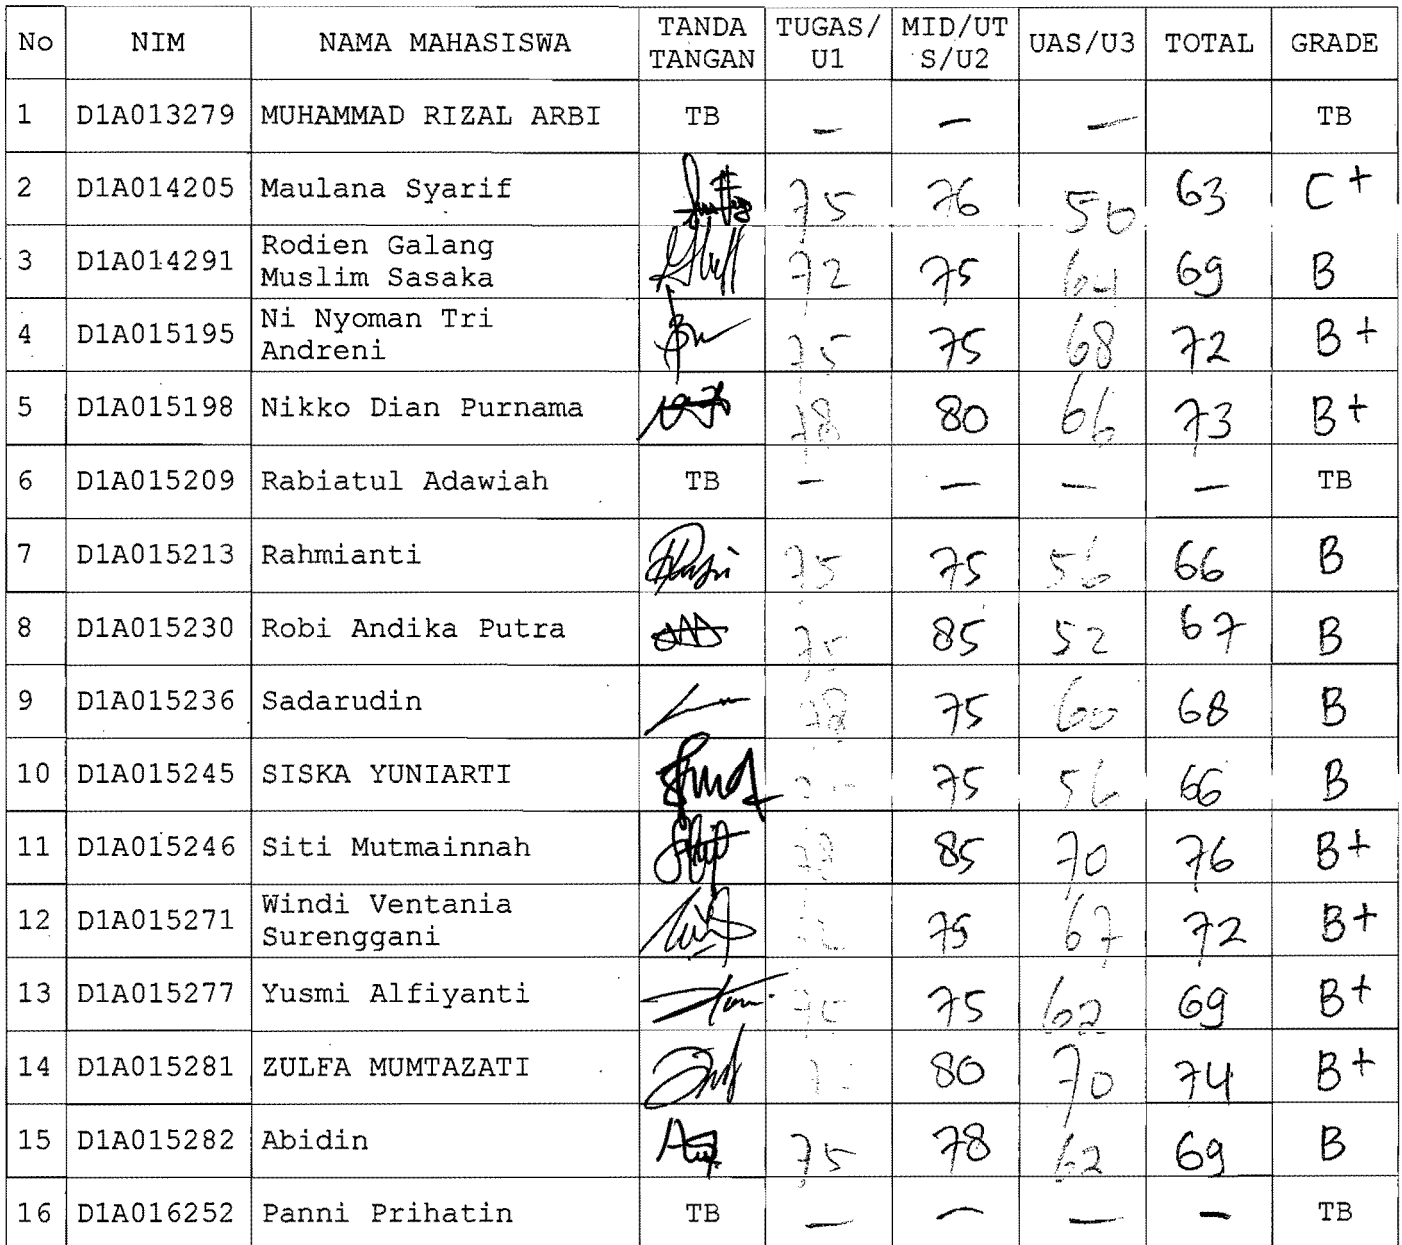 No NIM NAMA MAHASISWA TANDA TANGAN TUGAS/U1 MID/UTS/U2 UAS/U3 TOTAL GRADE
1 D1A013279 MUHAMMAD RIZAL ARBI TB — — — TB
2 D1A014205 Maulana Syarif 75 76 50 63 C+
3 D1A014291 Rodien Galang
Muslim Sasaka 72 75 64 69 B
4 D1A015195 Ni Nyoman Tri
Andreni 75 75 68 72 B+
5 D1A015198 Nikko Dian Purnama 78 80 66 73 B+
6 D1A015209 Rabiatul Adawiah TB — — — — TB
7 D1A015213 Rahmianti 75 75 56 66 B
8 D1A015230 Robi Andika Putra 75 85 52 67 B
9 D1A015236 Sadarudin 78 75 60 68 B
10 D1A015245 SISKA YUNIARTI 75 56 66 B
11 D1A015246 Siti Mutmainnah 78 85 70 76 B+
12 D1A015271 Windi Ventania
Surenggani 75 67 72 B+
13 D1A015277 Yusmi Alfiyanti 75 75 62 69 B+
14 D1A015281 ZULFA MUMTAZATI 80 70 74 B+
15 D1A015282 Abidin 75 78 62 69 B
16 D1A016252 Panni Prihatin TB — — — — TB